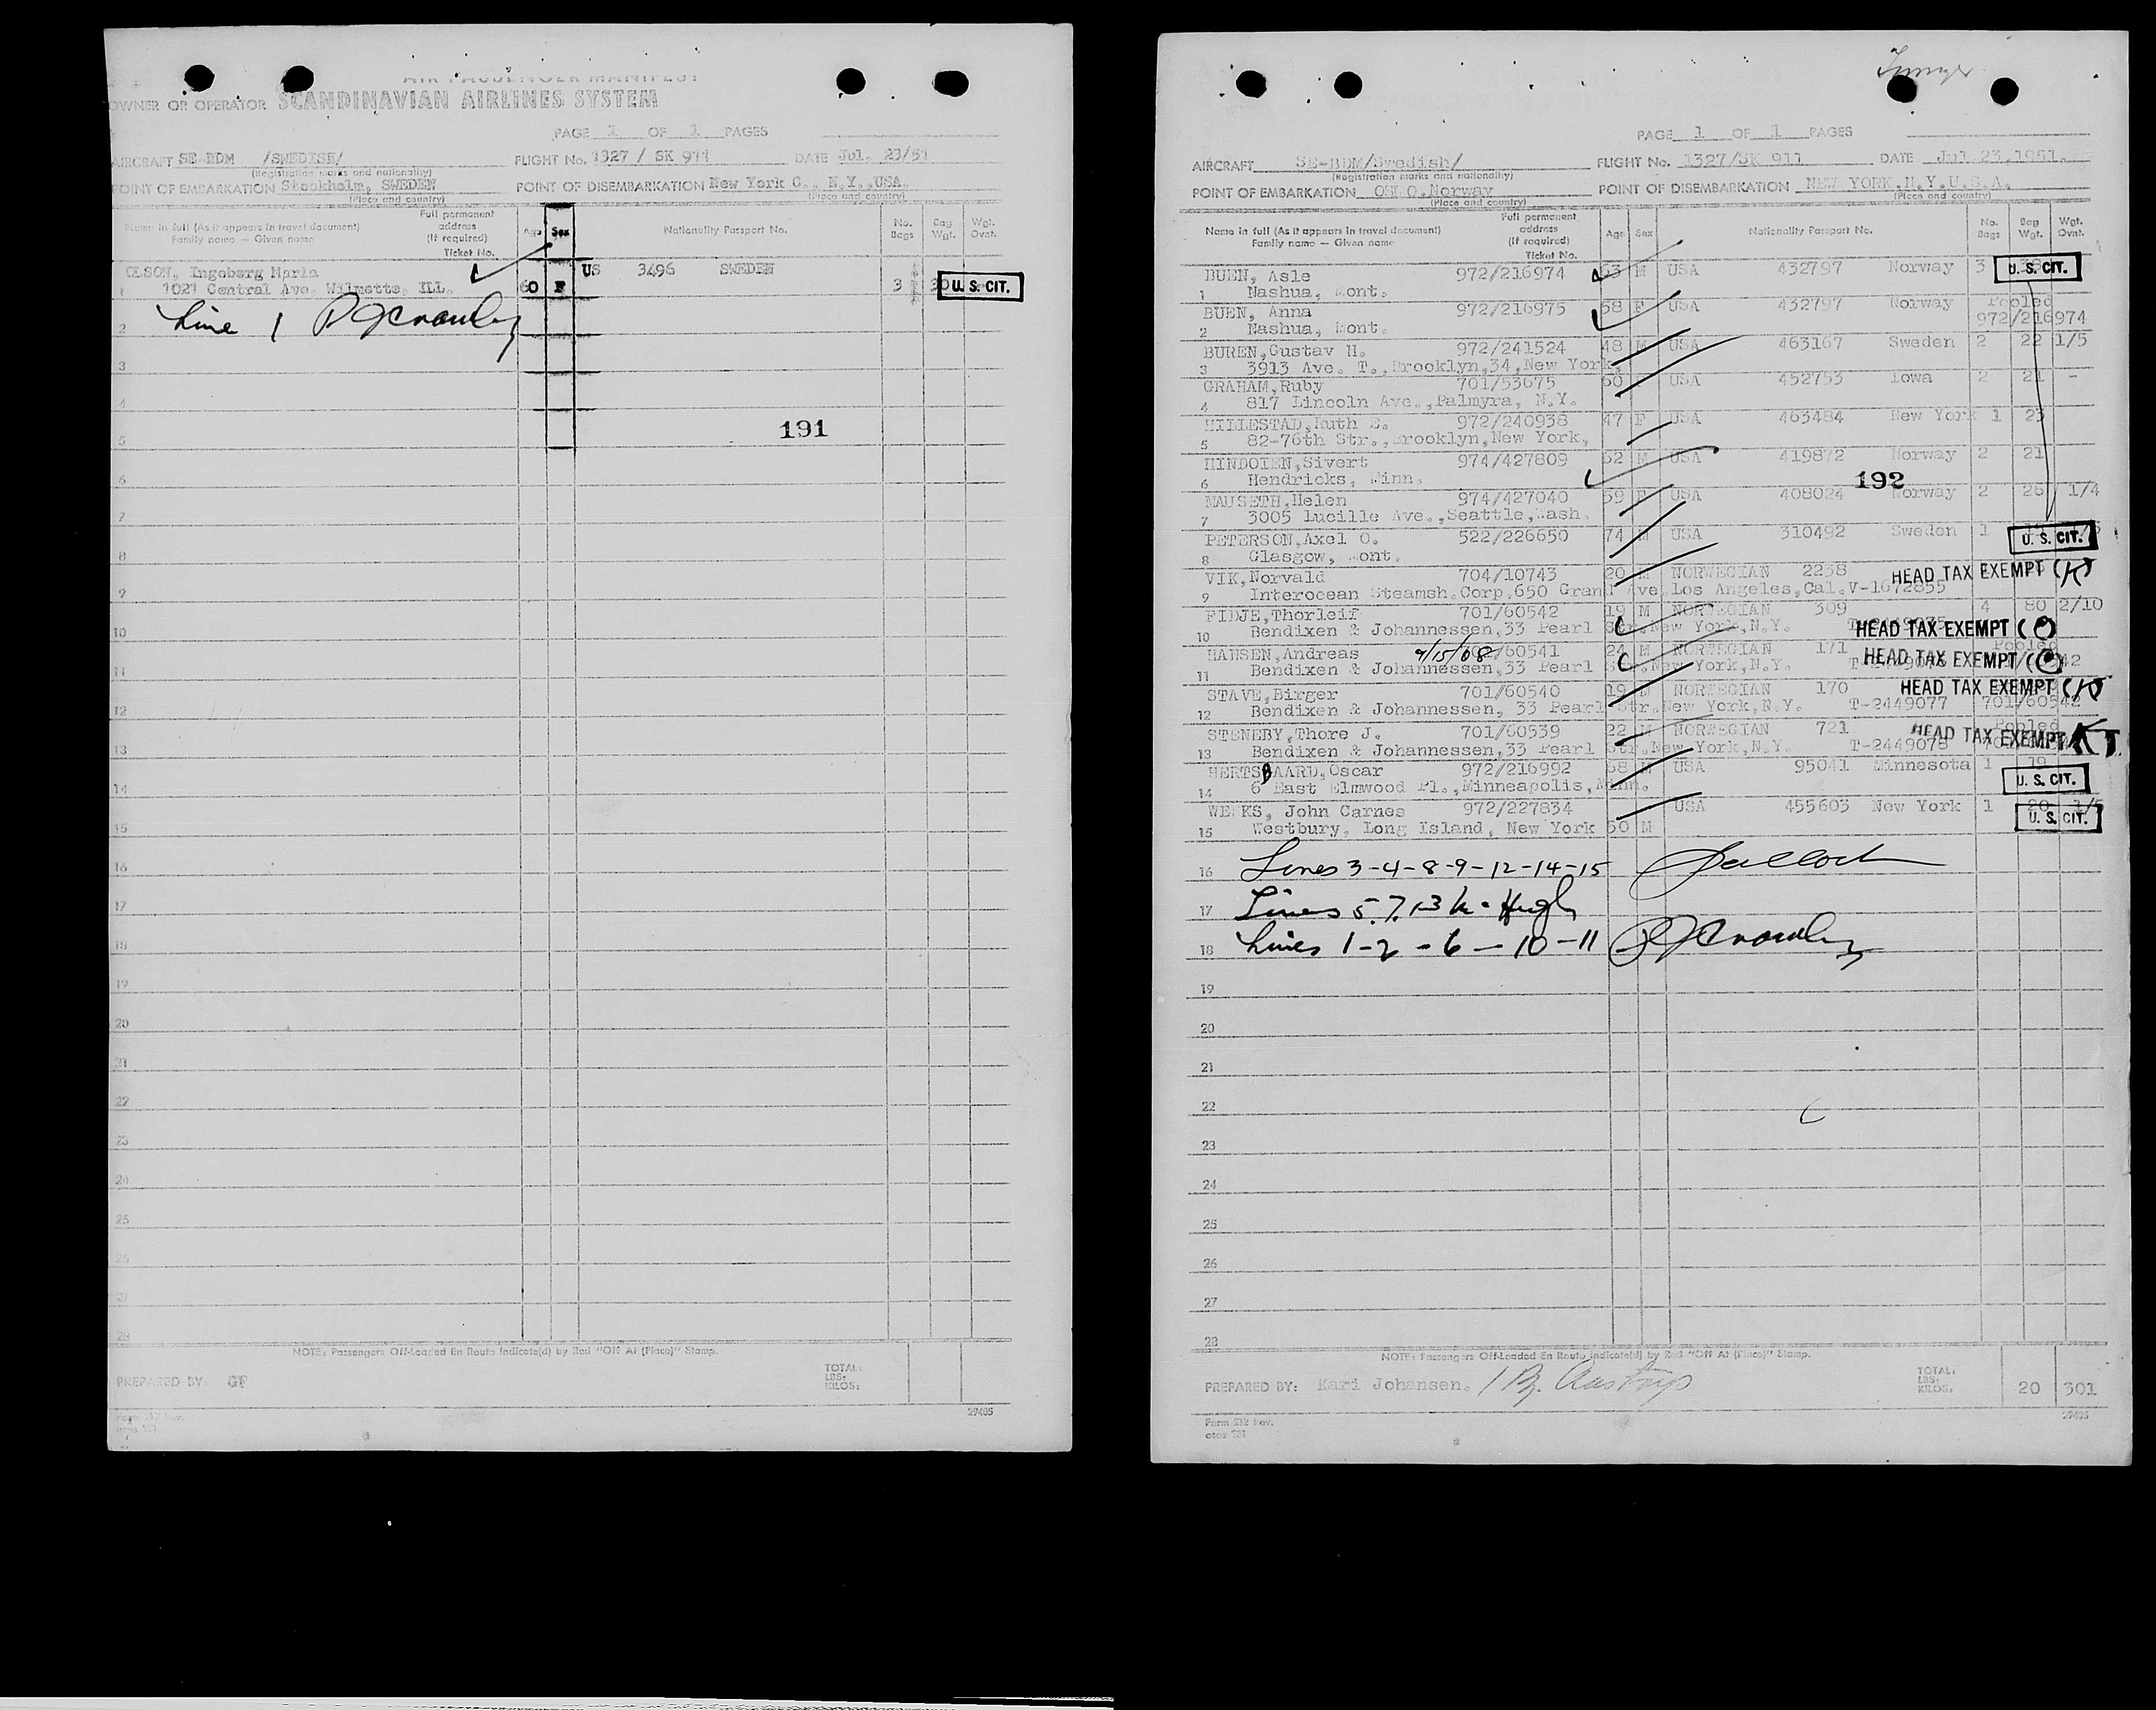 AIR PASSENGER MANIFEST
OWNER OR OPERATOR SCANDINAVIAN AIRLINES SYSTEM
PAGE 1 OF 1 PAGES
AIRCRAFT SE-BDM /SWEDISH/ FLIGHT No. 1327 / SK 911 DATE Jul. 23/51
(Registration marks and nationality)
POINT OF EMBARKATION Stockholm, SWEDEN POINT OF DISEMBARKATION New York C., N.Y., USA.
(Place and country) (Place and country)
Name in full (As it appears in travel document)
Family name — Given name
Full permanent
address
(If required)
Ticket No.
Age Sex Nationality Passport No. No. Bags Bag Wgt. Wgt. Ovnt.
OLSON, Ingeborg Maria US 3496 SWEDEN
1 1021 Central Ave. Wilmette, ILL. 60 F 3 30 U. S. CIT.
2 Line 1
3
4
5 191
6
7
8
9
10
11
12
13
14
15
16
17
18
19
20
21
22
23
24
25
26
27
28
NOTE: Passengers Off-Loaded En Route Indicate(d) by Red "Off At (Place)" Stamp.
PREPARED BY: GF TOTAL:
LBS:
KILOS:
Form 212 Rev.
29405
PAGE 1 OF 1 PAGES
AIRCRAFT SE-BDM/Swedish/ FLIGHT No. 1327/SK 911 DATE Jul.23,1951.
(Registration marks and nationality)
POINT OF EMBARKATION OSLO,Norway POINT OF DISEMBARKATION NEW YORK,N.Y.U.S.A.
(Place and country) (Place and country)
Name in full (As it appears in travel document)
Family name — Given name
Full permanent
address
(If required)
Ticket No.
Age Sex Nationality Passport No. No. Bags Bag Wgt. Wgt. Ovnt.
BUEN, Asle 972/216974 63 M USA 432797 Norway 3 U. S. CIT.
1 Nashua, Mont.
BUEN, Anna 972/216975 58 F USA 432797 Norway Pooled
2 Nashua, Mont. 972/216974
BUREN,Gustav H. 972/241524 48 M USA 463167 Sweden 2 22 1/5
3 3913 Ave. T.,Brooklyn,34,New York,
GRAHAM,Ruby 701/53675 60 USA 452753 Iowa 2 21 -
4 817 Lincoln Ave.,Palmyra, N.Y.
HILLESTAD,Ruth E. 972/240938 47 F USA 463484 New York 1 23
5 82-76th Str.,Brooklyn,New York,
HINDOIEN,Sivert 974/427809 62 M USA 419872 Norway 2 21
6 Hendricks, Minn. 192
MAUSETH,Helen 974/427040 59 F USA 408024 Norway 2 26 1/4
7 3005 Lucille Ave.,Seattle,Wash.
PETERSON,Axel O. 522/226650 74 M USA 310492 Sweden 1 U. S. CIT.
8 Glasgow, Mont.
VIK,Norvald 704/10743 20 M NORWEGIAN 2238 HEAD TAX EXEMPT (K)
9 Interocean Steamsh.Corp,650 Grand Ave Los Angeles,Cal.V-1672855
FIDJE,Thorleif 701/60542 19 M NORWEGIAN 309 4 80 2/10
10 Bendixen & Johannessen,33 Pearl Str.New York,N.Y. HEAD TAX EXEMPT (C)
HANSEN,Andreas 9/15/08 701/60541 24 M NORWEGIAN 171 Pooled
11 Bendixen & Johannessen,33 Pearl Str.New York,N.Y. HEAD TAX EXEMPT (C)
STAVE,Birger 701/60540 19 M NORWEGIAN 170 HEAD TAX EXEMPT (K)
12 Bendixen & Johannessen, 33 Pearl Str.New York,N.Y. T-2449077 701/60542
STENEBY,Thore J. 701/60539 22 M NORWEGIAN 721 Pooled HEAD TAX EXEMPT
13 Bendixen & Johannessen,33 Pearl Str.New York,N.Y. T-2449078
HERTSGAARD,Oscar 972/216992 68 M USA 95041 Minnesota 1 19
14 6 East Elmwood Pl.,Minneapolis,Minn. U. S. CIT.
WEEKS, John Carnes 972/227834 USA 455603 New York 1 20 1/5
15 Westbury, Long Island, New York 50 M U. S. CIT.
16 Lines 3-4-8-9-12-14-15
17 Lines 5.7.13
18 Lines 1-2-6-10-11
19
20
21
22
23
24
25
26
27
28
NOTE: Passengers Off-Loaded En Route Indicate(d) by Red "Off At (Place)" Stamp.
PREPARED BY: Kari Johansen. TOTAL:
LBS:
KILOS: 20 301
Form 212 Rev.
29405